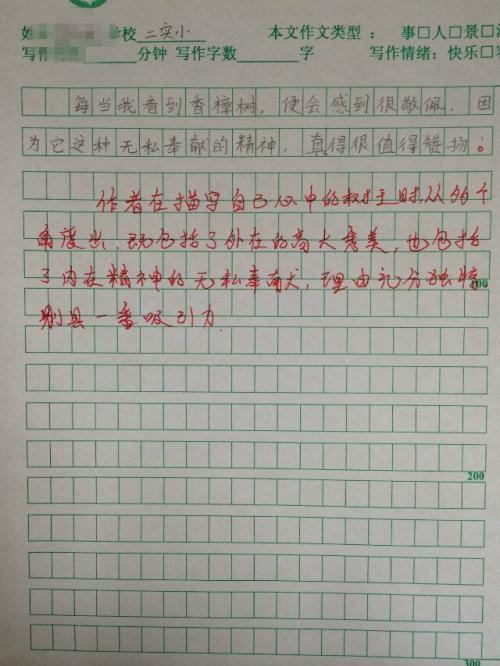 学校 二实小 本文作文类型： 事□人□景□
分钟 写作字数 字 写作情绪：快乐□
每当我看到香樟树，便会感到很敬佩，因
为它这种无私奉献的精神，真得很值得赞扬。
作者在描写自己心中的树王时，从多个
角度出，既包括了外在的高大秀美，也包括
了内在精神的无私奉献，理由充分独特
别具一番吸引力。
100
200
300